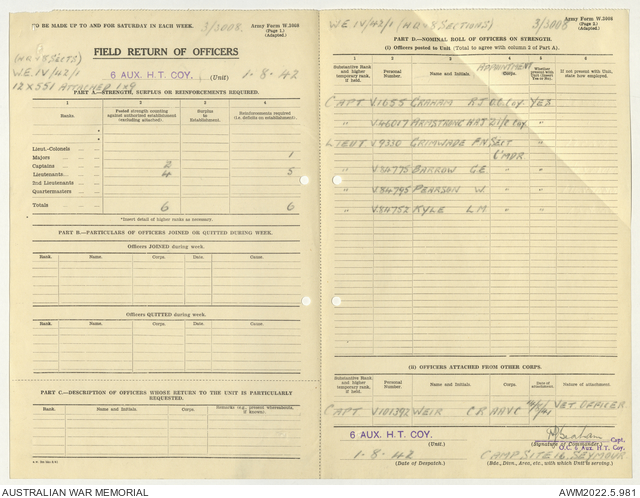 TO BE MADE UP TO AND FOR SATURDAY IN EACH WEEK.
3/3008.
Army Form W.3008
(Page 1.)
(Adapted.)
FIELD RETURN OF OFFICERS
W.E. IV/42/1
6 AUX. H.T. COY. (Unit) 1-8-42
12 X 551 ATTACHED 1X9
PART A.—STRENGTH, SURPLUS OR REINFORCEMENTS REQUIRED.
1 2 3 4
Ranks. Posted strength counting against authorised establishment (excluding attached). Surplus to Establishment. Reinforcements required (i.e. deficits on establishment).
Lieut.-Colonels
Majors 1
Captains 2
Lieutenants 4 5
2nd Lieutenants
Quartermasters
Totals 6 6
*Insert detail of higher ranks as necessary.
PART B.—PARTICULARS OF OFFICERS JOINED OR QUITTED DURING WEEK.
Officers JOINED during week.
Rank. Name. Corps. Date. Cause.
Officers QUITTED during week.
Rank. Name. Corps. Date. Cause.
PART C.—DESCRIPTION OF OFFICERS WHOSE RETURN TO THE UNIT IS PARTICULARLY REQUESTED.
Rank. Name and Initials. Corps. Remarks (e.g., present whereabouts, if known).
W.E. IV/42/1 (HQ & 8 SECTIONS) 3/3008
Army Form W.3008
(Page 2.)
(Adapted.)
PART D.—NOMINAL ROLL OF OFFICERS ON STRENGTH.
(i) Officers posted to Unit (Total to agree with column 2 of Part A).
1 2 3 4 5 6
APPOINTMENT
Substantive Rank and higher temporary rank, if held. Personal Number. Name and Initials. Whether present with Unit (insert Yes or No). If not present with Unit, state how employed.
CAPT V.1655 GRAHAM R J O.C. Coy YES
" V46017 ARMSTRONG HAJ 2 i/c Coy. "
LIEUT V.9330 GRIMWADE F N SECT "
C'MDR
" V.34775 BARROW G.E. " "
" V.34795 PEARSON W. " "
" V.34752 KYLE L M " "
(ii) OFFICERS ATTACHED FROM OTHER CORPS.
Substantive Rank and higher temporary rank, if held. Personal Number. Name and Initials. Corps. Date of attachment. Nature of attachment.
CAPT V101392 WEIR C R AAVC VET. OFFICER
6 AUX. H.T. COY. (Unit.)
(Signature of Commander.) Capt.
O.C. 6 Aux H.T. Coy.
1-8-42
(Date of Despatch.)
CAMP SITE 16 SEYMOUR
(Bde., Divn., Area, etc., with which Unit is serving.)
AUSTRALIAN WAR MEMORIAL
AWM2022.5.981